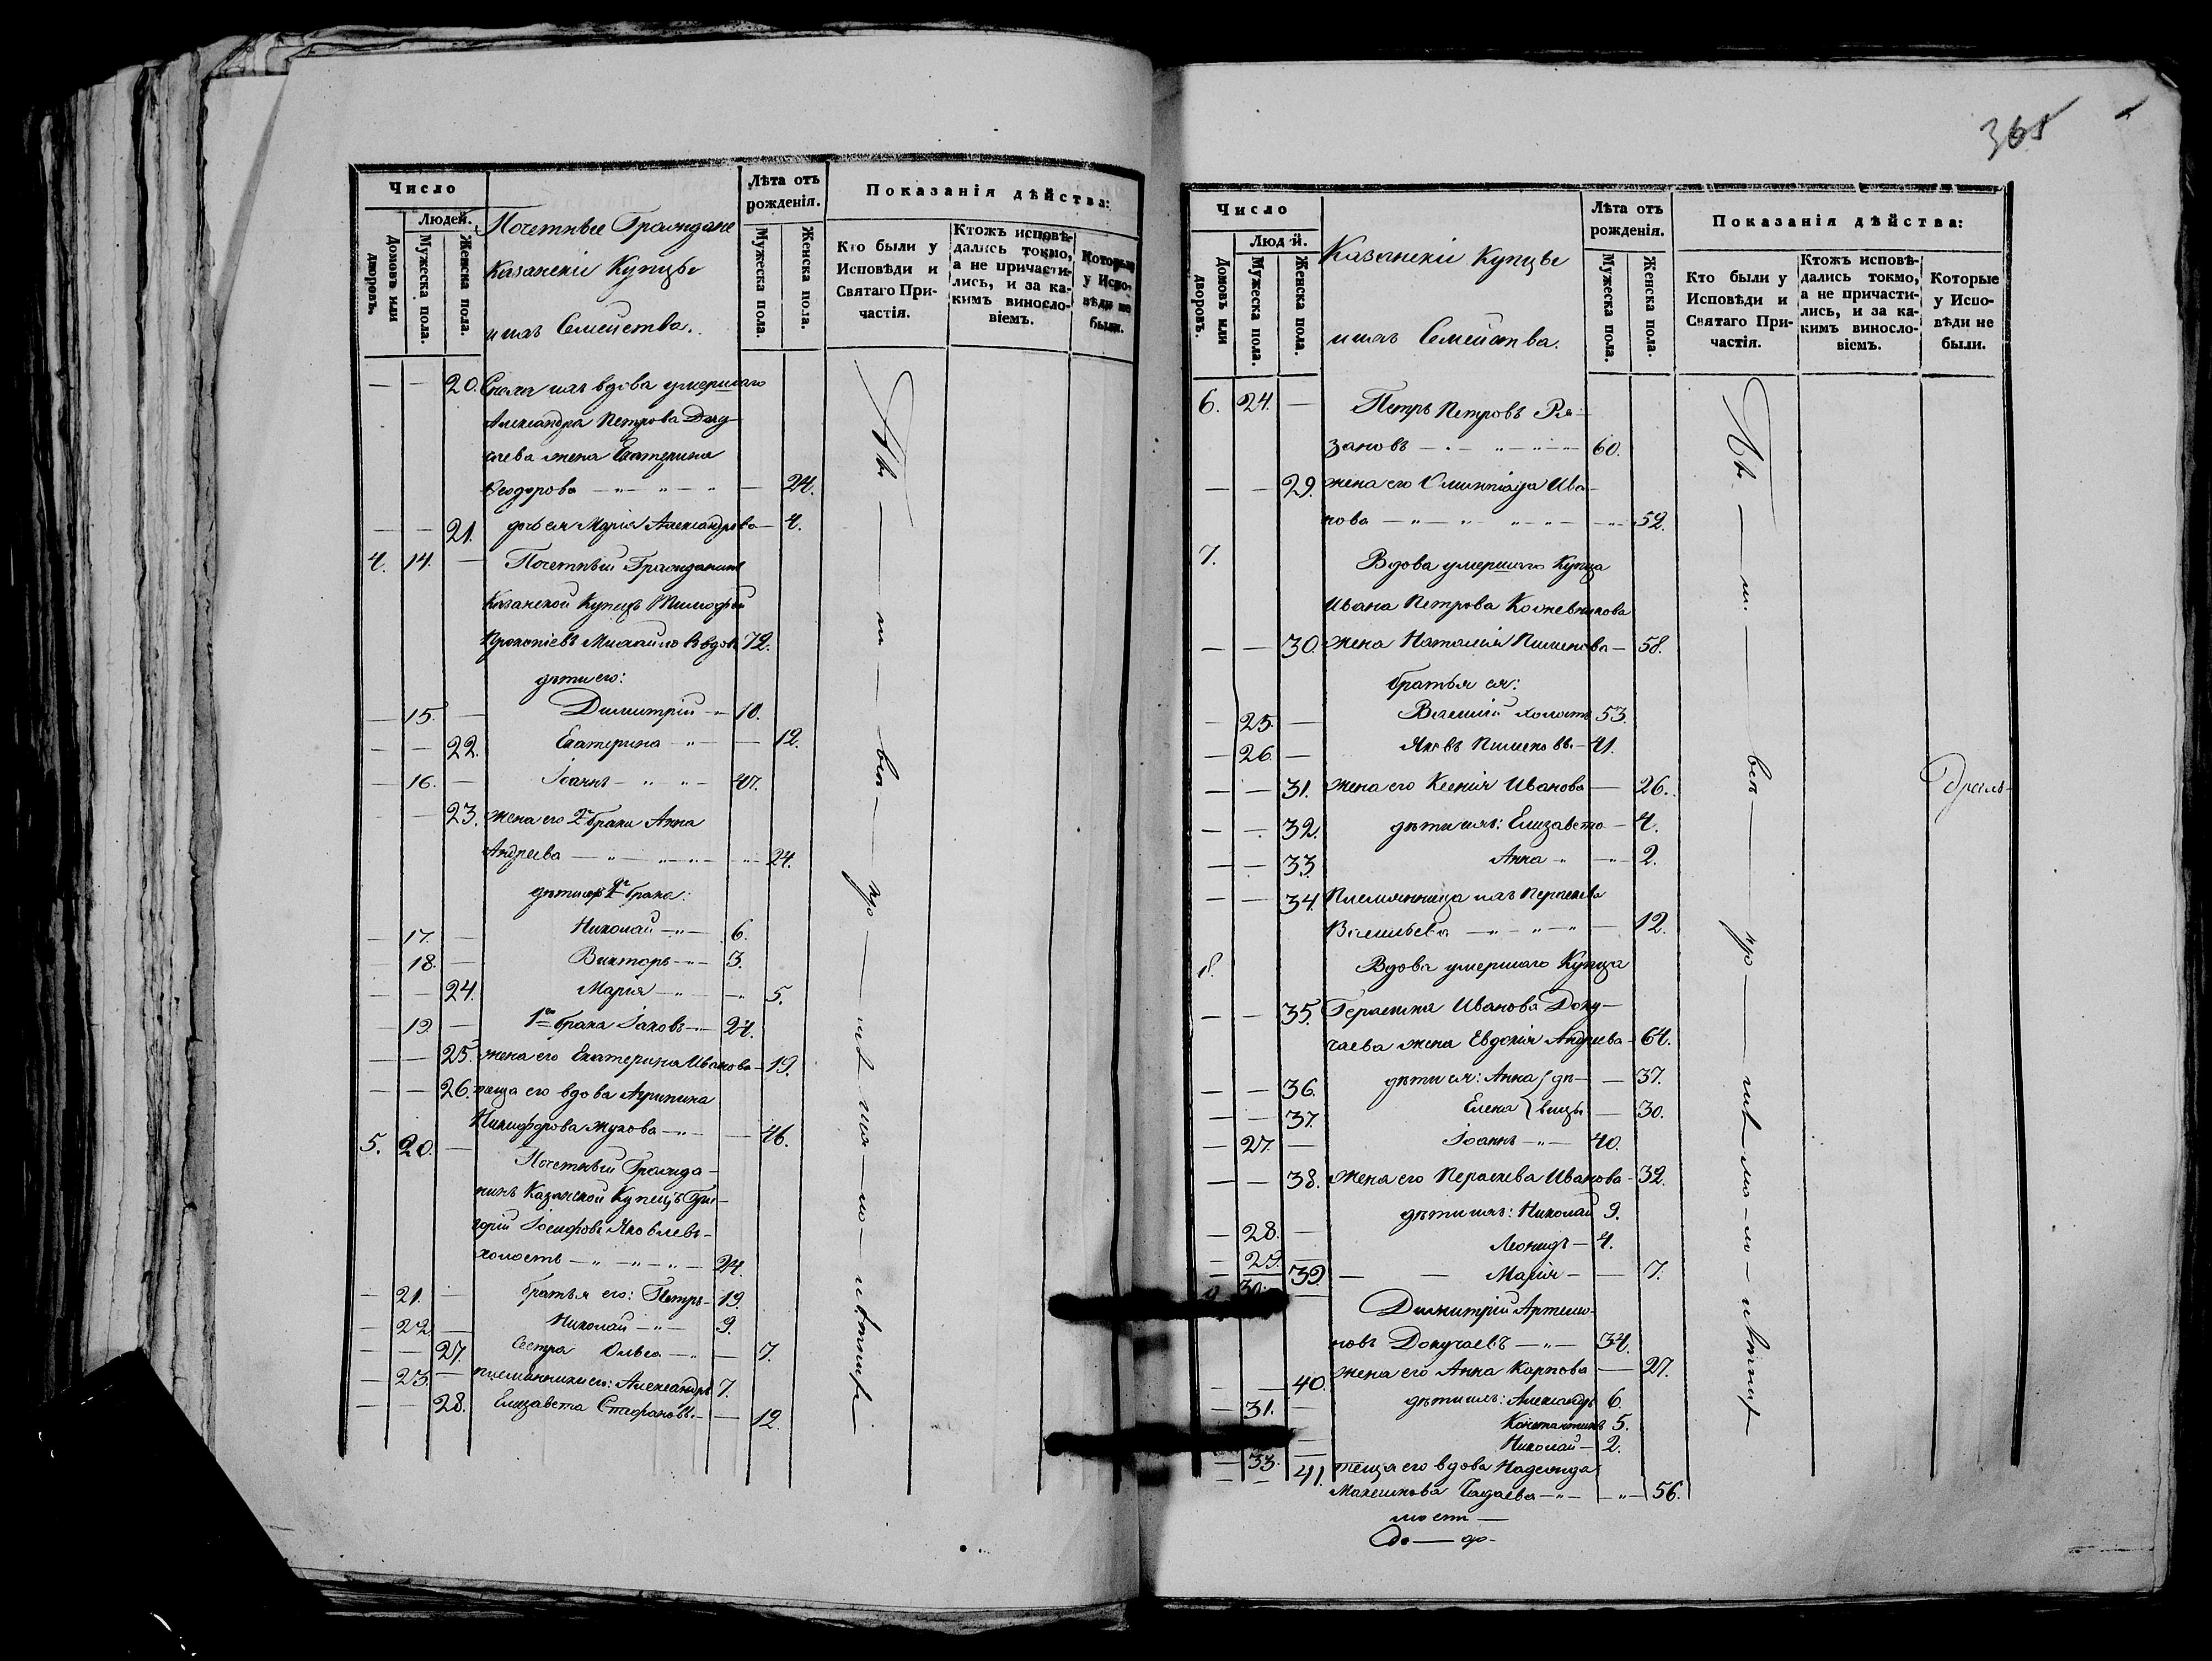 Число
Людей.
Домовъ или дворовъ.
Мужеска пола.
Женска пола.
Почетные Граждане
Казанскіи Купцы
и ихъ Семейства.
Лѣта отъ рожденія.
Мужеска пола.
Женска пола.
Показанія дѣйства:
Кто были у Исповѣди и Святаго Причастія.
Ктожъ исповѣдались токмо, а не причастились, и за какимъ винословіемъ.
Которые у Исповѣди не были.
— — 20. вдова умершаго
Александра Петрова Доку-
чаева жена Екатерина
Феодорова — 24.
— — 21. дочь ея Марія Александрова — 4.
4. 14. — Почетный Гражданинъ
Казанской Купецъ Тимофей
Прокопіевъ Михайло вдовъ 72.
дѣти его:
— 15. — Димитрій — 10.
— — 22. Екатерина — 12.
— 16. — Іоаннъ — 47.
— — 23. жена его 2го брака Анна
Андреева — 24.
дѣти ихъ 2го брака:
— 17. — Николай — 6.
— 18. — Викторъ — 3.
— — 24. Марія — 5.
— 19. — 1го брака Іаковъ — 24.
— — 25. жена его Екатерина Иванова — 19.
— — 26. теща его вдова Агрипина
Никифорова Жукова — 46.
5. 20. — Почетный Гражда-
нинъ Казанской Купецъ Гри-
горій Іосифовъ Яковлевъ
холостъ — 24.
— 21. — братья его: Петръ — 19.
— 22. — Николай — 9.
— — 27. Сестра Ольга — 7.
— 23. — племянники его: Александръ 7.
— — 28. Елизавета Стефановы — 12.
365
Число
Людей.
Домовъ или дворовъ.
Мужеска пола.
Женска пола.
Казанскіи Купцы
и ихъ Семейства.
Лѣта отъ рожденія.
Мужеска пола.
Женска пола.
Показанія дѣйства:
Кто были у Исповѣди и Святаго Причастія.
Ктожъ исповѣдались токмо, а не причастились, и за какимъ винословіемъ.
Которые у Исповѣди не были.
6. 24. — Петръ Петровъ Ря-
зановъ — 60.
— — 29. жена его Олимпіада Ива-
нова — 52.
7. Вдова умершаго Купца
Ивана Петрова Кожевникова
— — 30. жена Наталия Пименова — 58.
братья ея:
— 25. — Василій холостъ 53.
— 26. — Яковъ Пименовы — 41.
— — 31. жена его Ксения Иванова — 26.
— — 32. дѣти ихъ: Елизавета — 4.
— — 33. Анна — 2.
— — 34. Племянница ихъ
Васильева — 12.
8. Вдова умершаго Купца
— — 35. Герасима Иванова Доку-
чаева жена Евдокія Андреева — 64.
— — 36. дѣти ея: Анна дѣ- — 37.
— — 37. Елена вицы — 30.
— 27. — Іоаннъ — 40.
— — 38. жена его Пераскева Иванова — 32.
— 28. — дѣти ихъ: Николай 9.
— 29. — Леонидъ — 4.
— — 39. Марія — 7.
30. — Димитрій Артемо-
новъ Докучаевъ — 34.
— — 40. жена его Анна Карпова — 27.
— 31. — дѣти ихъ: Александръ 6.
Константинъ 5.
— 33. — Николай — 2.
— — 41. теща его вдова Надежда
Максимова Чадаева — 56.